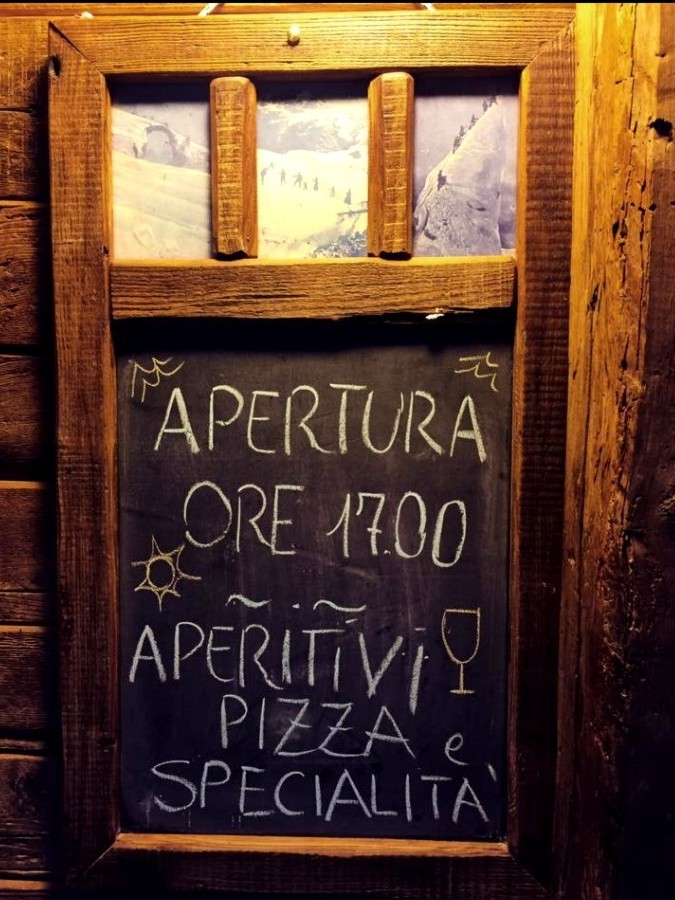 APERTURA
ORE 17.00
APERITIVI
PIZZA e
SPECIALITA'